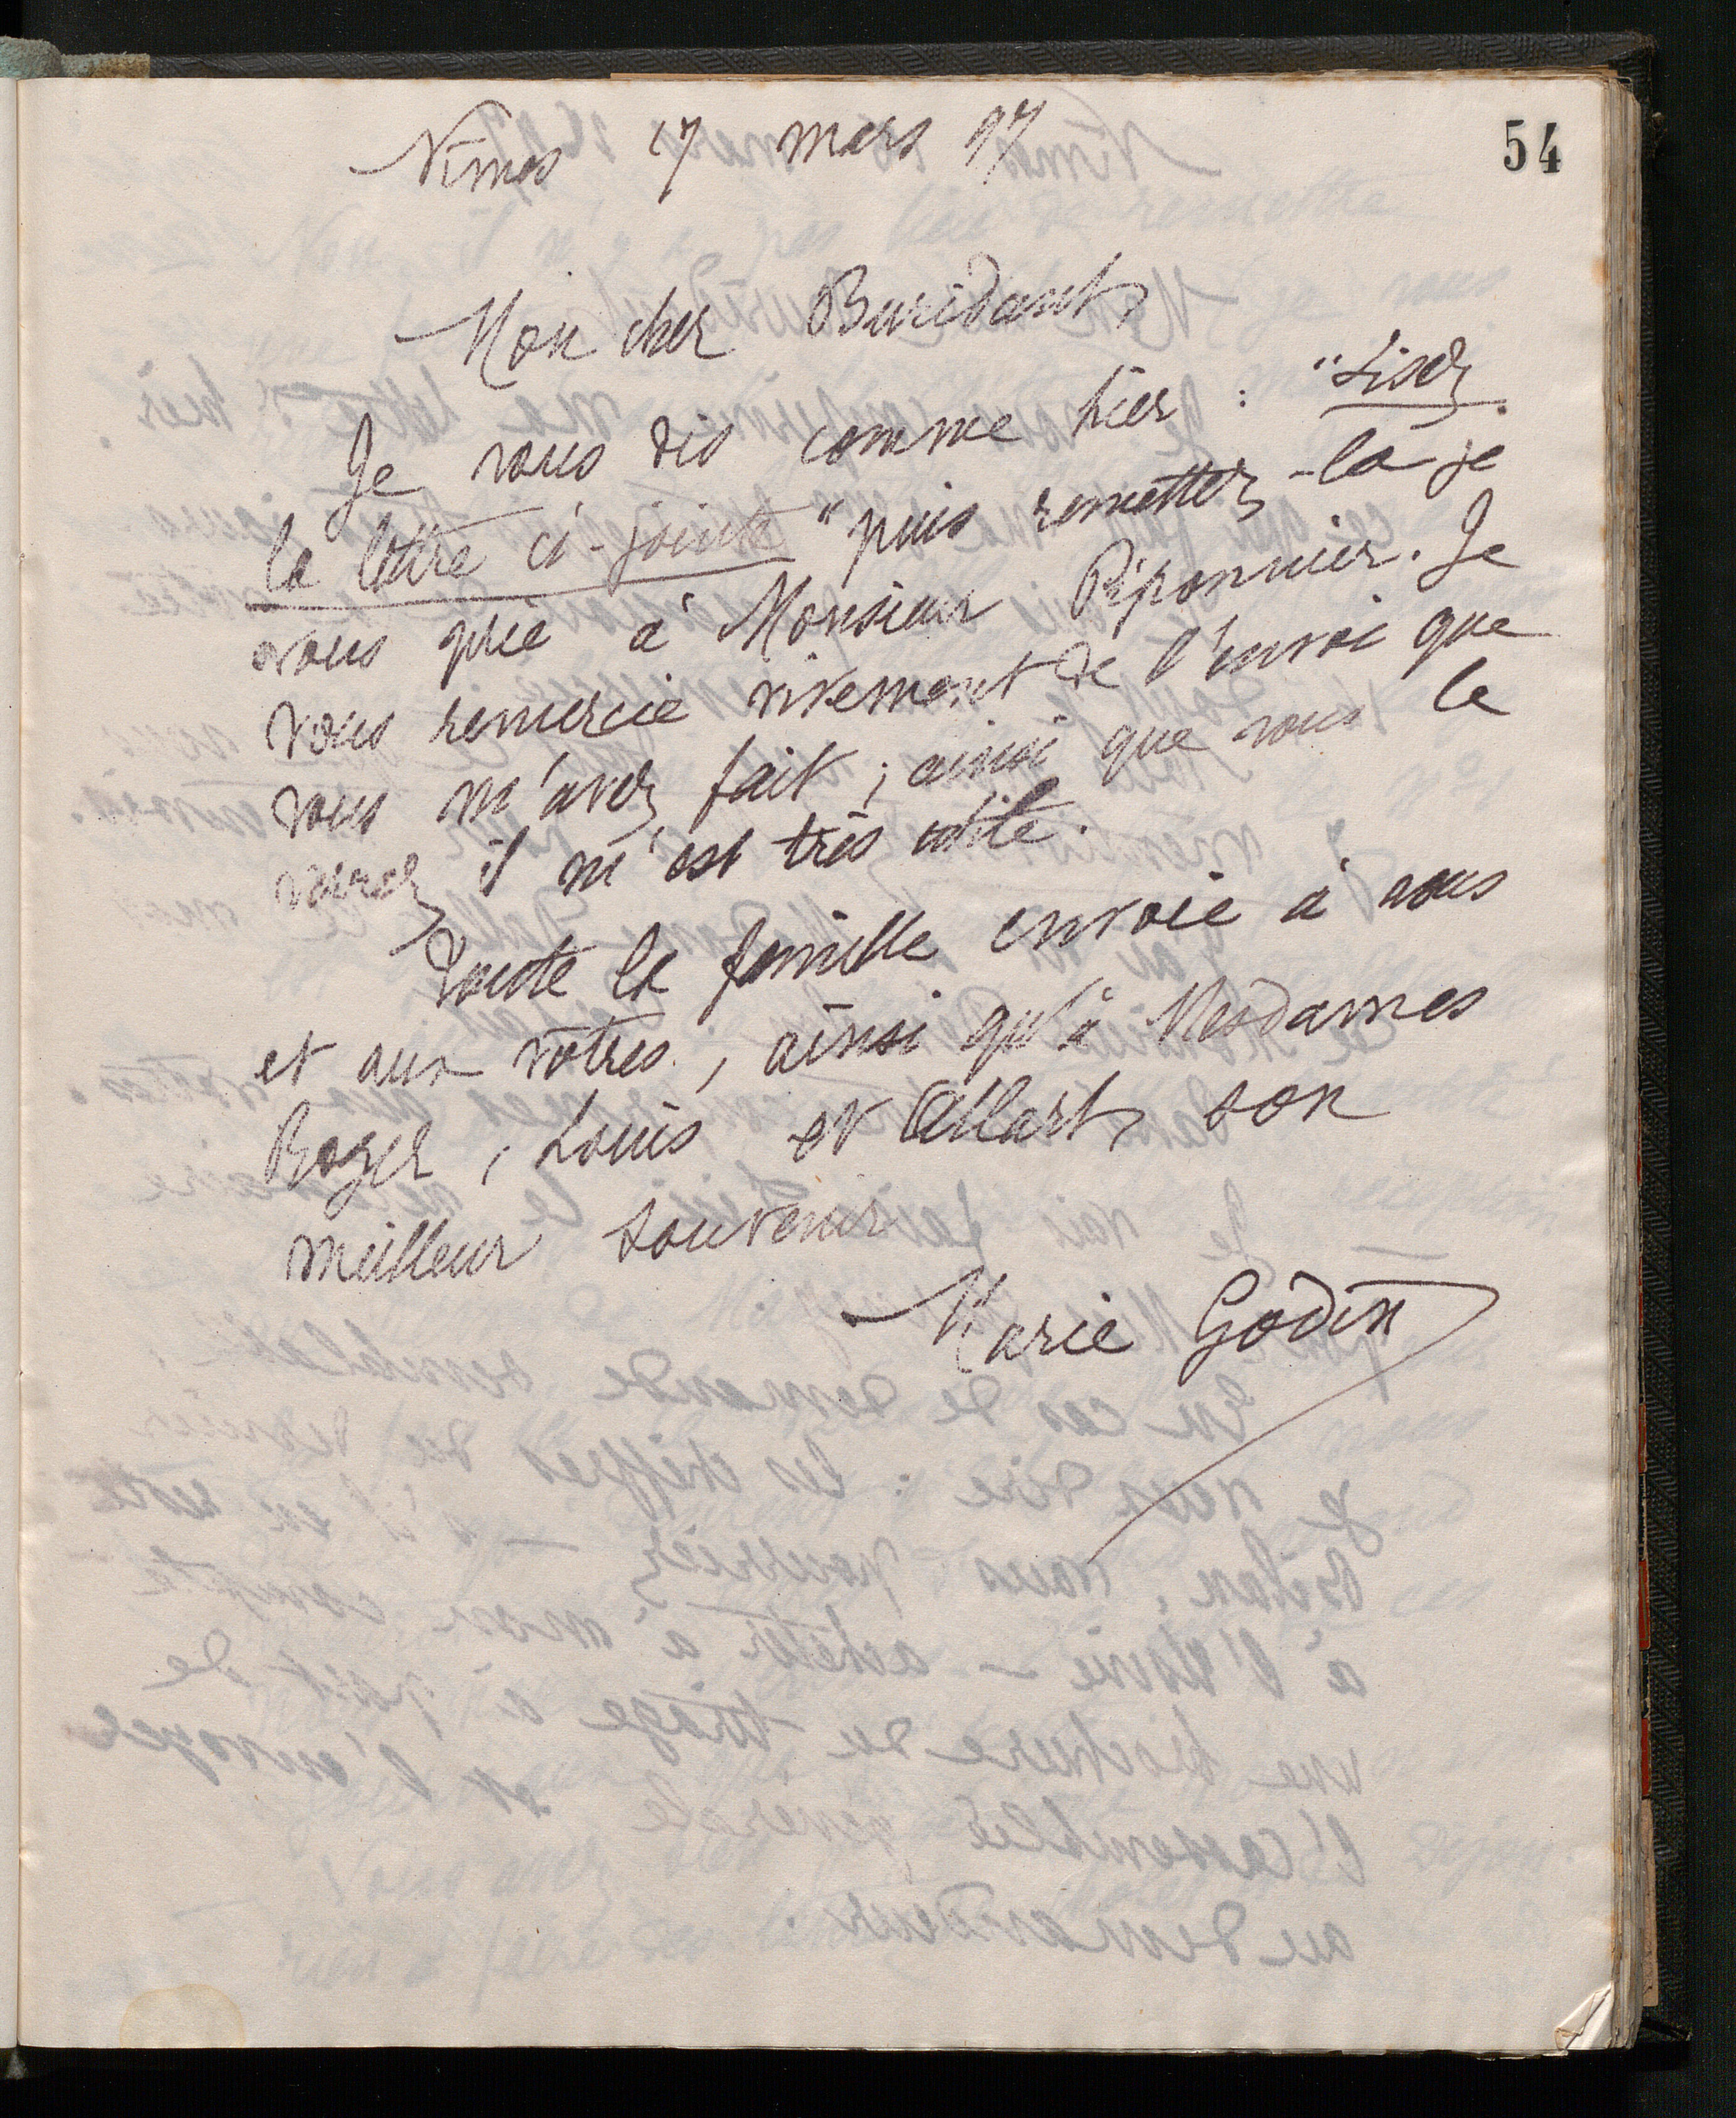 54
Nîmes 17 mars 97
Mon cher Buridant,
Je vous dis comme hier : "Lisez
la lettre ci-jointe" puis remettez-la je
vous prie à Monsieur Piponnier. Je
vous remercie vivement de l'envoi que
vous m'avez fait ; ainsi que vous le
verrez il m'est très utile.
Toute la famille envoie à vous
et aux vôtres, ainsi qu'à Mesdames
Roger, Louis et Allart, son
meilleur souvenir
Marie Godin